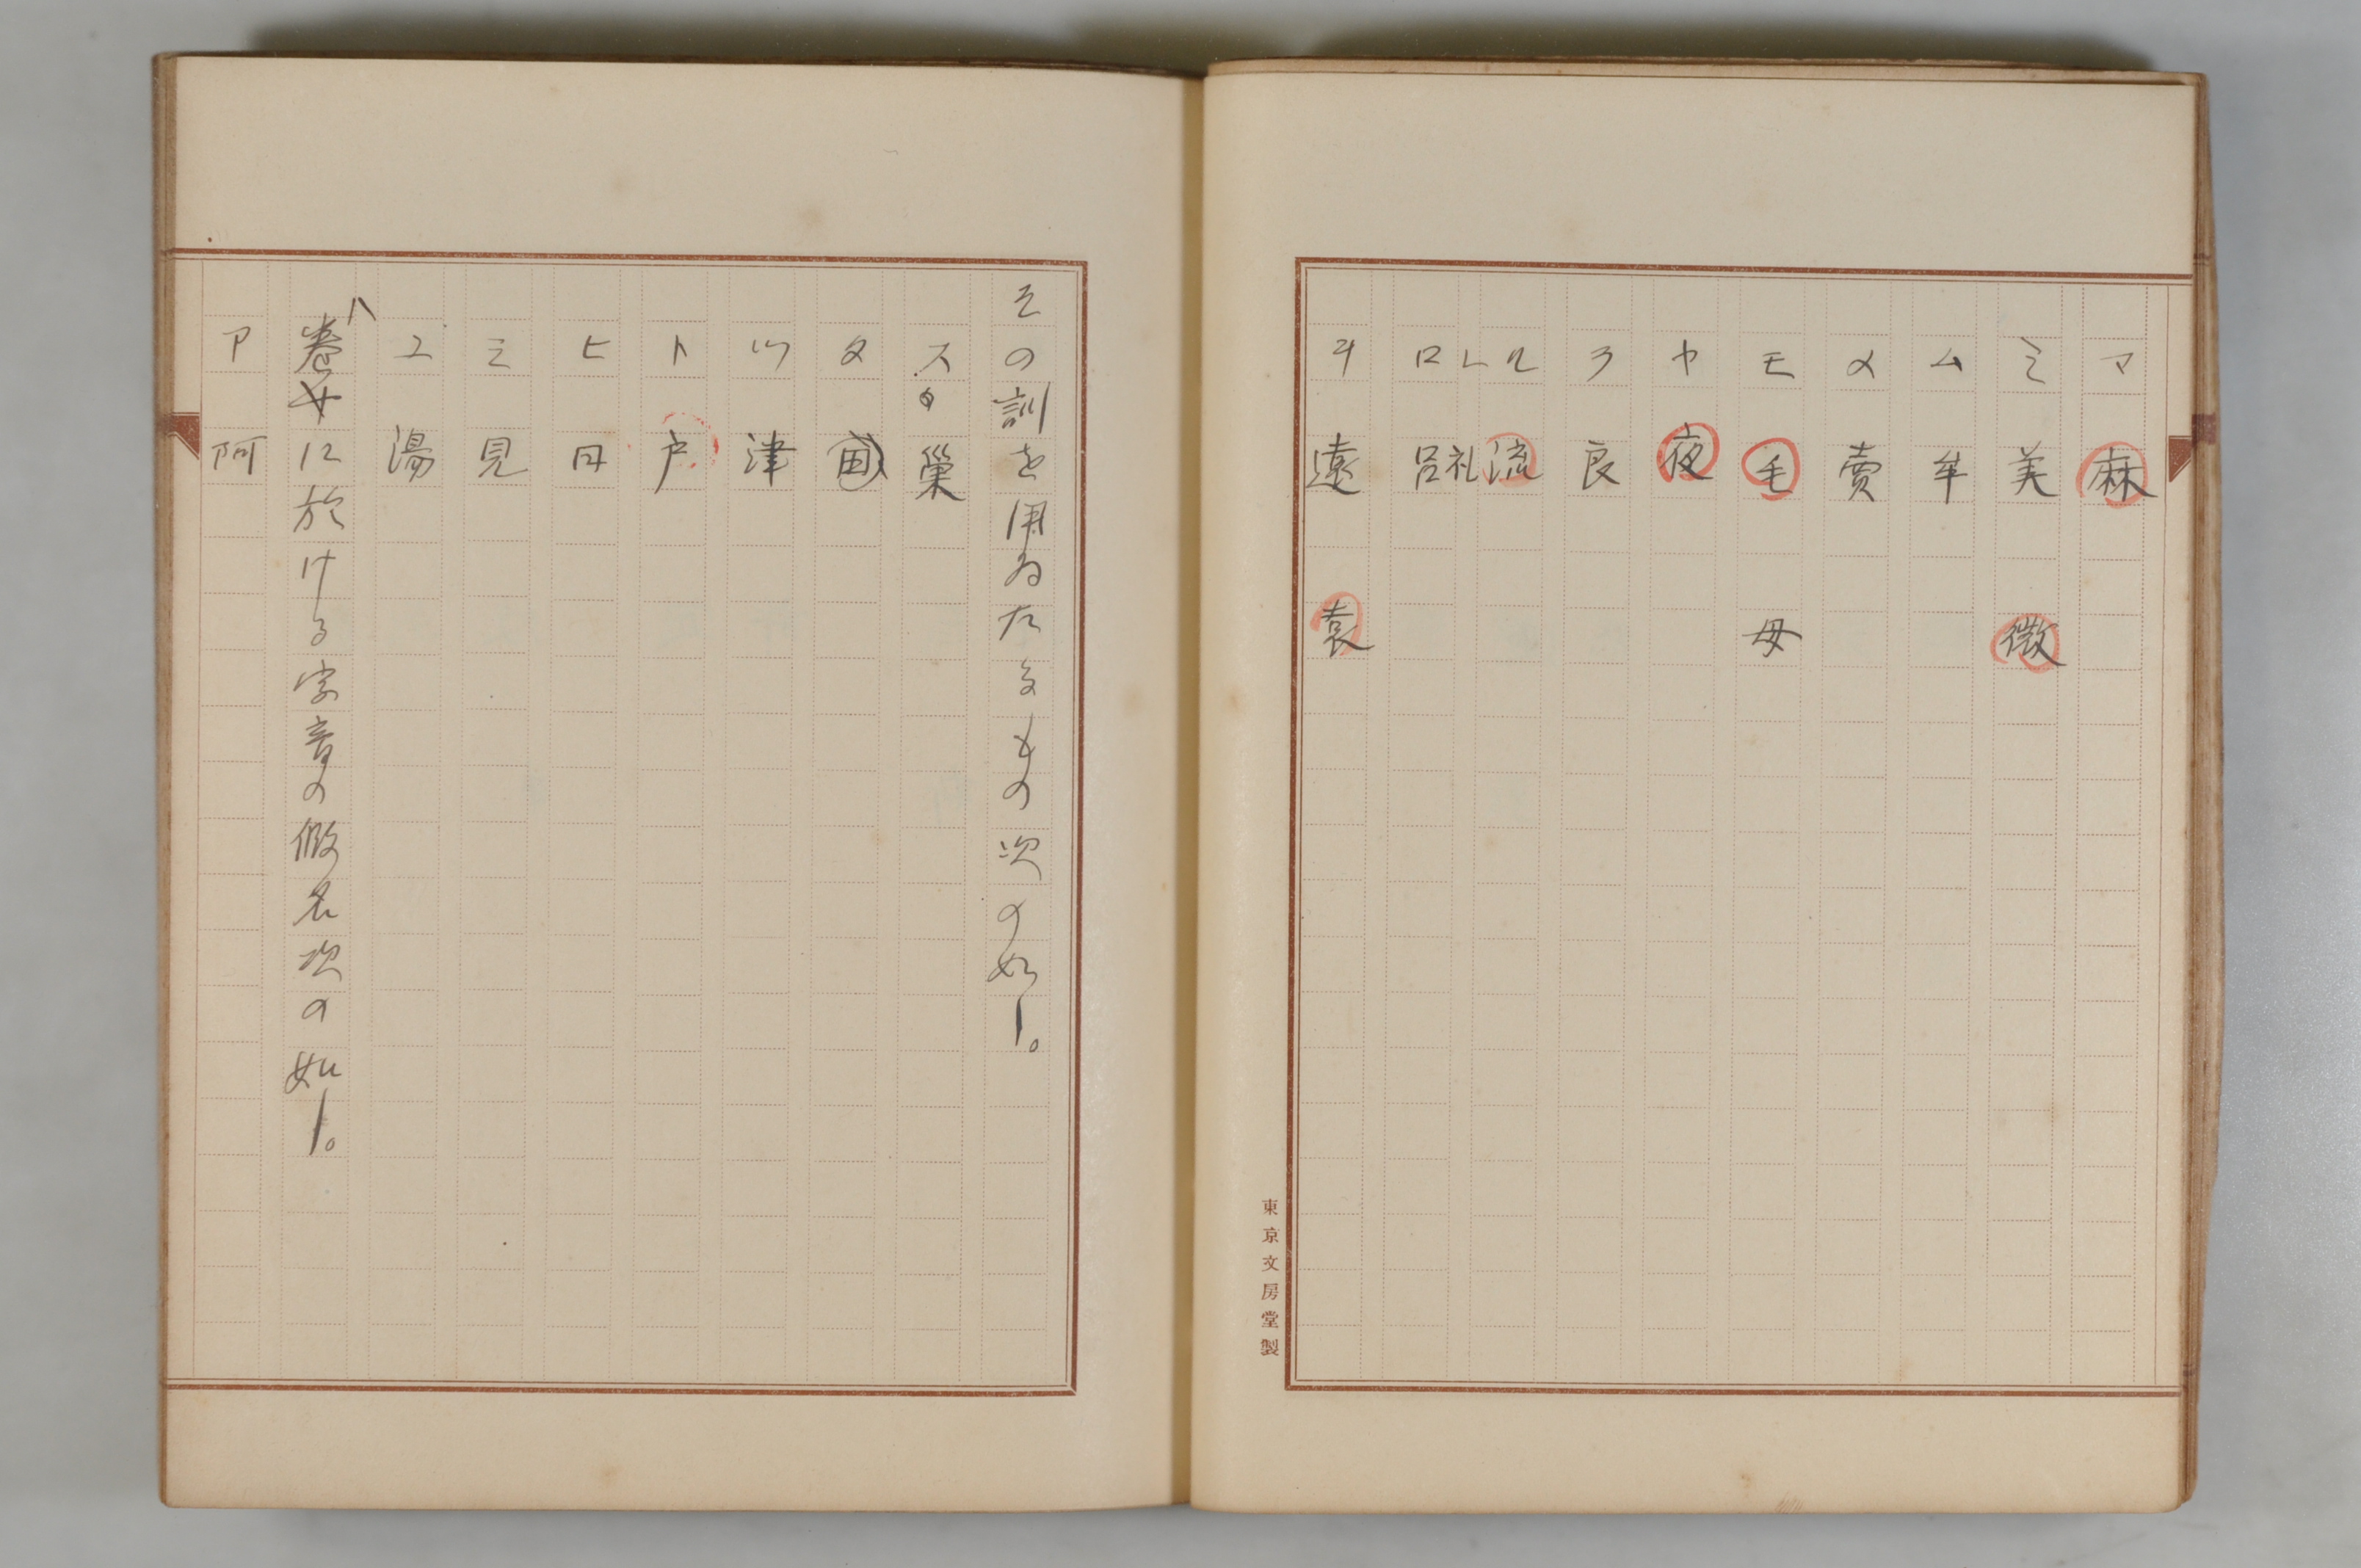 マ 麻
ミ 美 微
ム 牟
メ 賣
モ 毛 母
ヤ 夜
ラ 良
ル 流
レ 礼
ロ 呂
ヲ 遠 袁
東京文房堂製
その訓を用ゐたるもの次の如し。
ス 巣
タ 田
ツ 津
ト 戸
ヒ 日
ミ 見
ユ 湯
巻に於ける字音の假名次の如し。
ア 阿